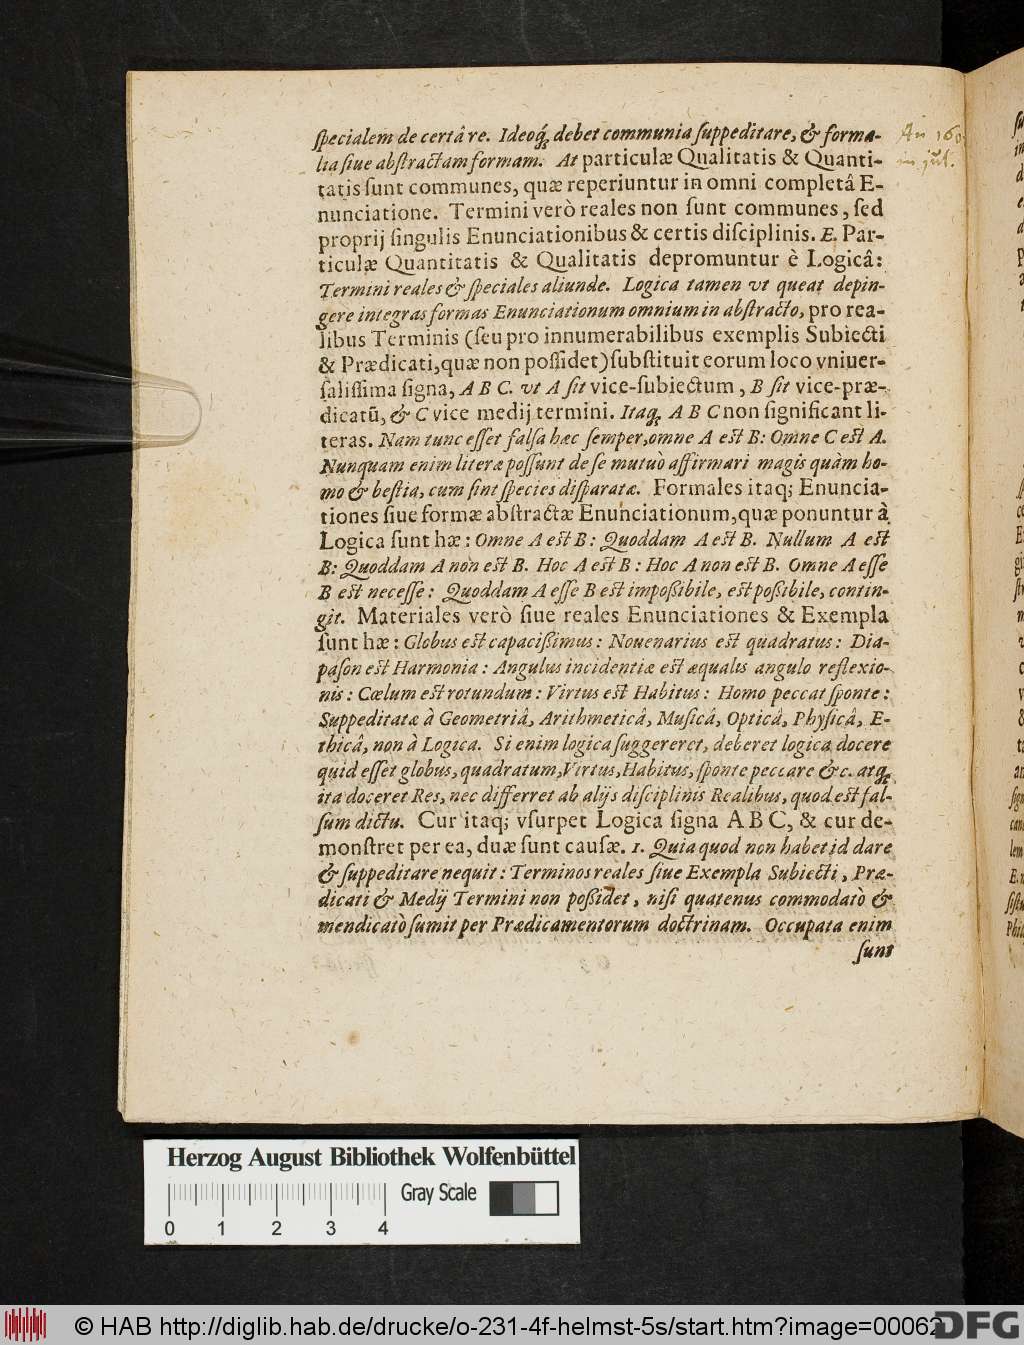 ſpecialem de certâ re. Ideoq́; debet communia ſuppeditare, & forma-
lia ſiue abſtractam formam. At particulæ Qualitatis & Quanti-
tatis ſunt communes, quæ reperiuntur in omni completâ E-
nunciatione. Termini verò reales non ſunt communes, ſed
proprij ſingulis Enunciationibus & certis diſciplinis. E. Par-
ticulæ Quantitatis & Qualitatis depromuntur è Logicâ:
Termini reales & ſpeciales aliunde. Logica tamen vt queat depin-
gere integras formas Enunciationum omnium in abſtracto, pro rea-
libus Terminis (ſeu pro innumerabilibus exemplis Subiecti
& Prædicati, quæ non poſſidet) ſubſtituit eorum loco vniuer-
ſaliſſima ſigna, A B C. vt A ſit vice-ſubiectum, B ſit vice-præ-
dicatũ, & C vice medij termini. Itaq; A B C non ſignificant li-
teras. Nam tunc eſſet falſa hæc ſemper, omne A eſt B: Omne C eſt A.
Nunquam enim literæ poſſunt de ſe mutuò affirmari magis quàm ho-
mo & beſtia, cum ſint ſpecies diſparatæ. Formales itaq; Enuncia-
tiones ſiue formæ abſtractæ Enunciationum, quæ ponuntur à
Logica ſunt hæ: Omne A eſt B: Quoddam A eſt B. Nullum A eſt
B: Quoddam A non eſt B. Hoc A eſt B: Hoc A non eſt B. Omne A eſſe
B eſt neceſſe: Quoddam A eſſe B eſt impoßibile, eſt poßibile, contin-
git. Materiales verò ſiue reales Enunciationes & Exempla
ſunt hæ: Globus eſt capacißimus: Nouenarius eſt quadratus: Dia-
paſon eſt Harmonia: Angulus incidentiæ eſt æqualis angulo reflexio-
nis: Cœlum eſt rotundum: Virtus eſt Habitus: Homo peccat ſponte:
Suppeditatæ à Geometriâ, Arithmeticâ, Muſicâ, Opticâ, Phyſicâ, E-
thicâ, non à Logica. Si enim logica ſuggereret, deberet logica docere
quid eſſet globus, quadratum, Virtus, Habitus, ſponte peccare &c. atq;
ita doceret Res, nec differret ab alijs diſciplinis Realibus, quod eſt fal-
ſum dictu. Cur itaq; vſurpet Logica ſigna A B C, & cur de-
monſtret per ea, duæ ſunt cauſæ. 1. Quia quod non habet id dare
& ſuppeditare nequit: Terminos reales ſiue Exempla Subiecti, Præ-
dicati & Medij Termini non poßidet, niſi quatenus commodatò &
mendicatò ſumit per Prædicamentorum doctrinam. Occupata enim
ſunt
An 160
in jul.
Herzog August Bibliothek Wolfenbüttel
Gray Scale
0 1 2 3 4
© HAB http://diglib.hab.de/drucke/o-231-4f-helmst-5s/start.htm?image=00062
DFG